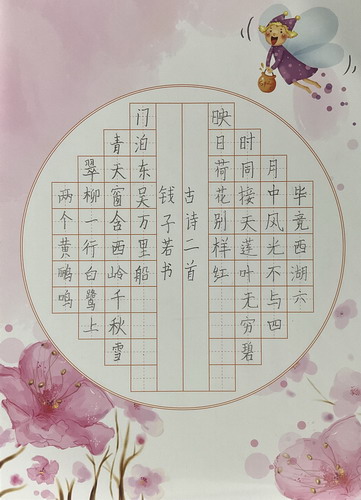 毕竟西湖六
月中风光不与四
时同接天莲叶无穷碧
映日荷花别样红
古诗二首
钱子若书
两个黄鹂鸣
翠柳一行白鹭上
青天窗含西岭千秋雪
门泊东吴万里船